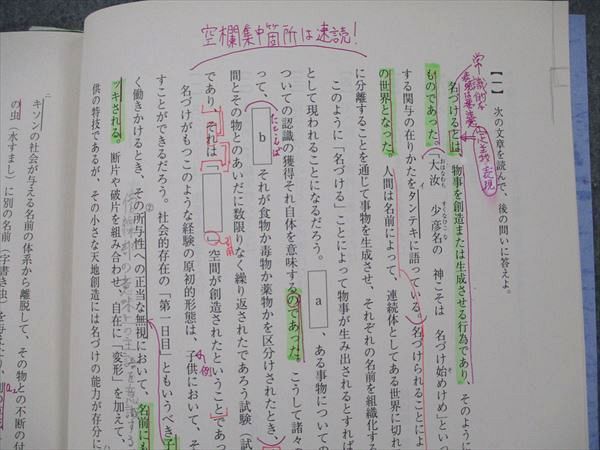 空欄集中箇所は速読!
常識的
定義表現
【一】 次の文章を読んで、後の問いに答えよ。
名づけるとは、物事を創造または生成させる行為であり、そのように
ものであった。「大汝 少彦名の 神こそは 名づけ始めけめ」といっ
おほなむち すくなびこな
する関与の在りかたをタンテキに語っている。名づけられることによ
イ
の世界となった。人間は名前によって、連続体としてある世界に切れ
に分離することを通じて事物を生成させ、それぞれの名前を組織化する
このように「名づける」ことによって物事が生み出されるとすれば
として現われることになるだろう。 a 、ある事物についての
ついての認識の獲得それ自体を意味するのであった。こうして諸々の
って、 b それが食物か毒物か薬物かを区分けされたとき、
たとえば
間とその物とのあいだに数限りなく繰り返されたであろう試験(試
であり、それは「 」空間が創造されたということであっ
引用
名づけがもつこのような経験の原初的形態は、子供において、そ
例
すことができるだろう。社会的存在の「第一日目」ともいうべき子
く働きかけるとき、その所与性への正当な無視において、名前にも
②
ッキされる。断片や破片を組み合わせ、自在に「変形」を加えて、
供の特技であるが、その小さな天地創造には名づけの能力が存分に
キソンの社会が与える名前の体系から離脱して、その物との不断の付
ニ
の虫(水すまし)に別の名前(字書き虫)を与え